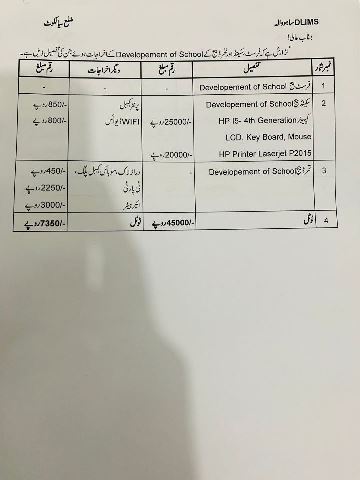 DLIMS ساہووالہ ضلع سیالکوٹ
جناب عالی!
گزارش ہے کہ فرسٹ، سیکنڈ اور تھرڈ فیز کے Developement of School کے اخراجات ہوئے جن کی تفصیل ذیل ہے۔
نمبر شمار تفصیل رقم مبلغ دیگر اخراجات رقم مبلغ
1 فرسٹ فیز Developement of School - - -
2 سیکنڈ فیز Developement of School پرنٹر کیبل 850/- روپے
کمپیوٹر HP I5- 4th Generation 25000/- روپے WIFI ڈیوائس 800/- روپے
LCD, Key Board, Mouse
HP Printer Laserjet P2015 20000/- روپے
3 تھرڈ فیز Developement of School - کیبل 450/- روپے
ٹی پارٹی 2250/- روپے
3000/- روپے
4 ٹوٹل 45000/- روپے ٹوٹل 7350/- روپے